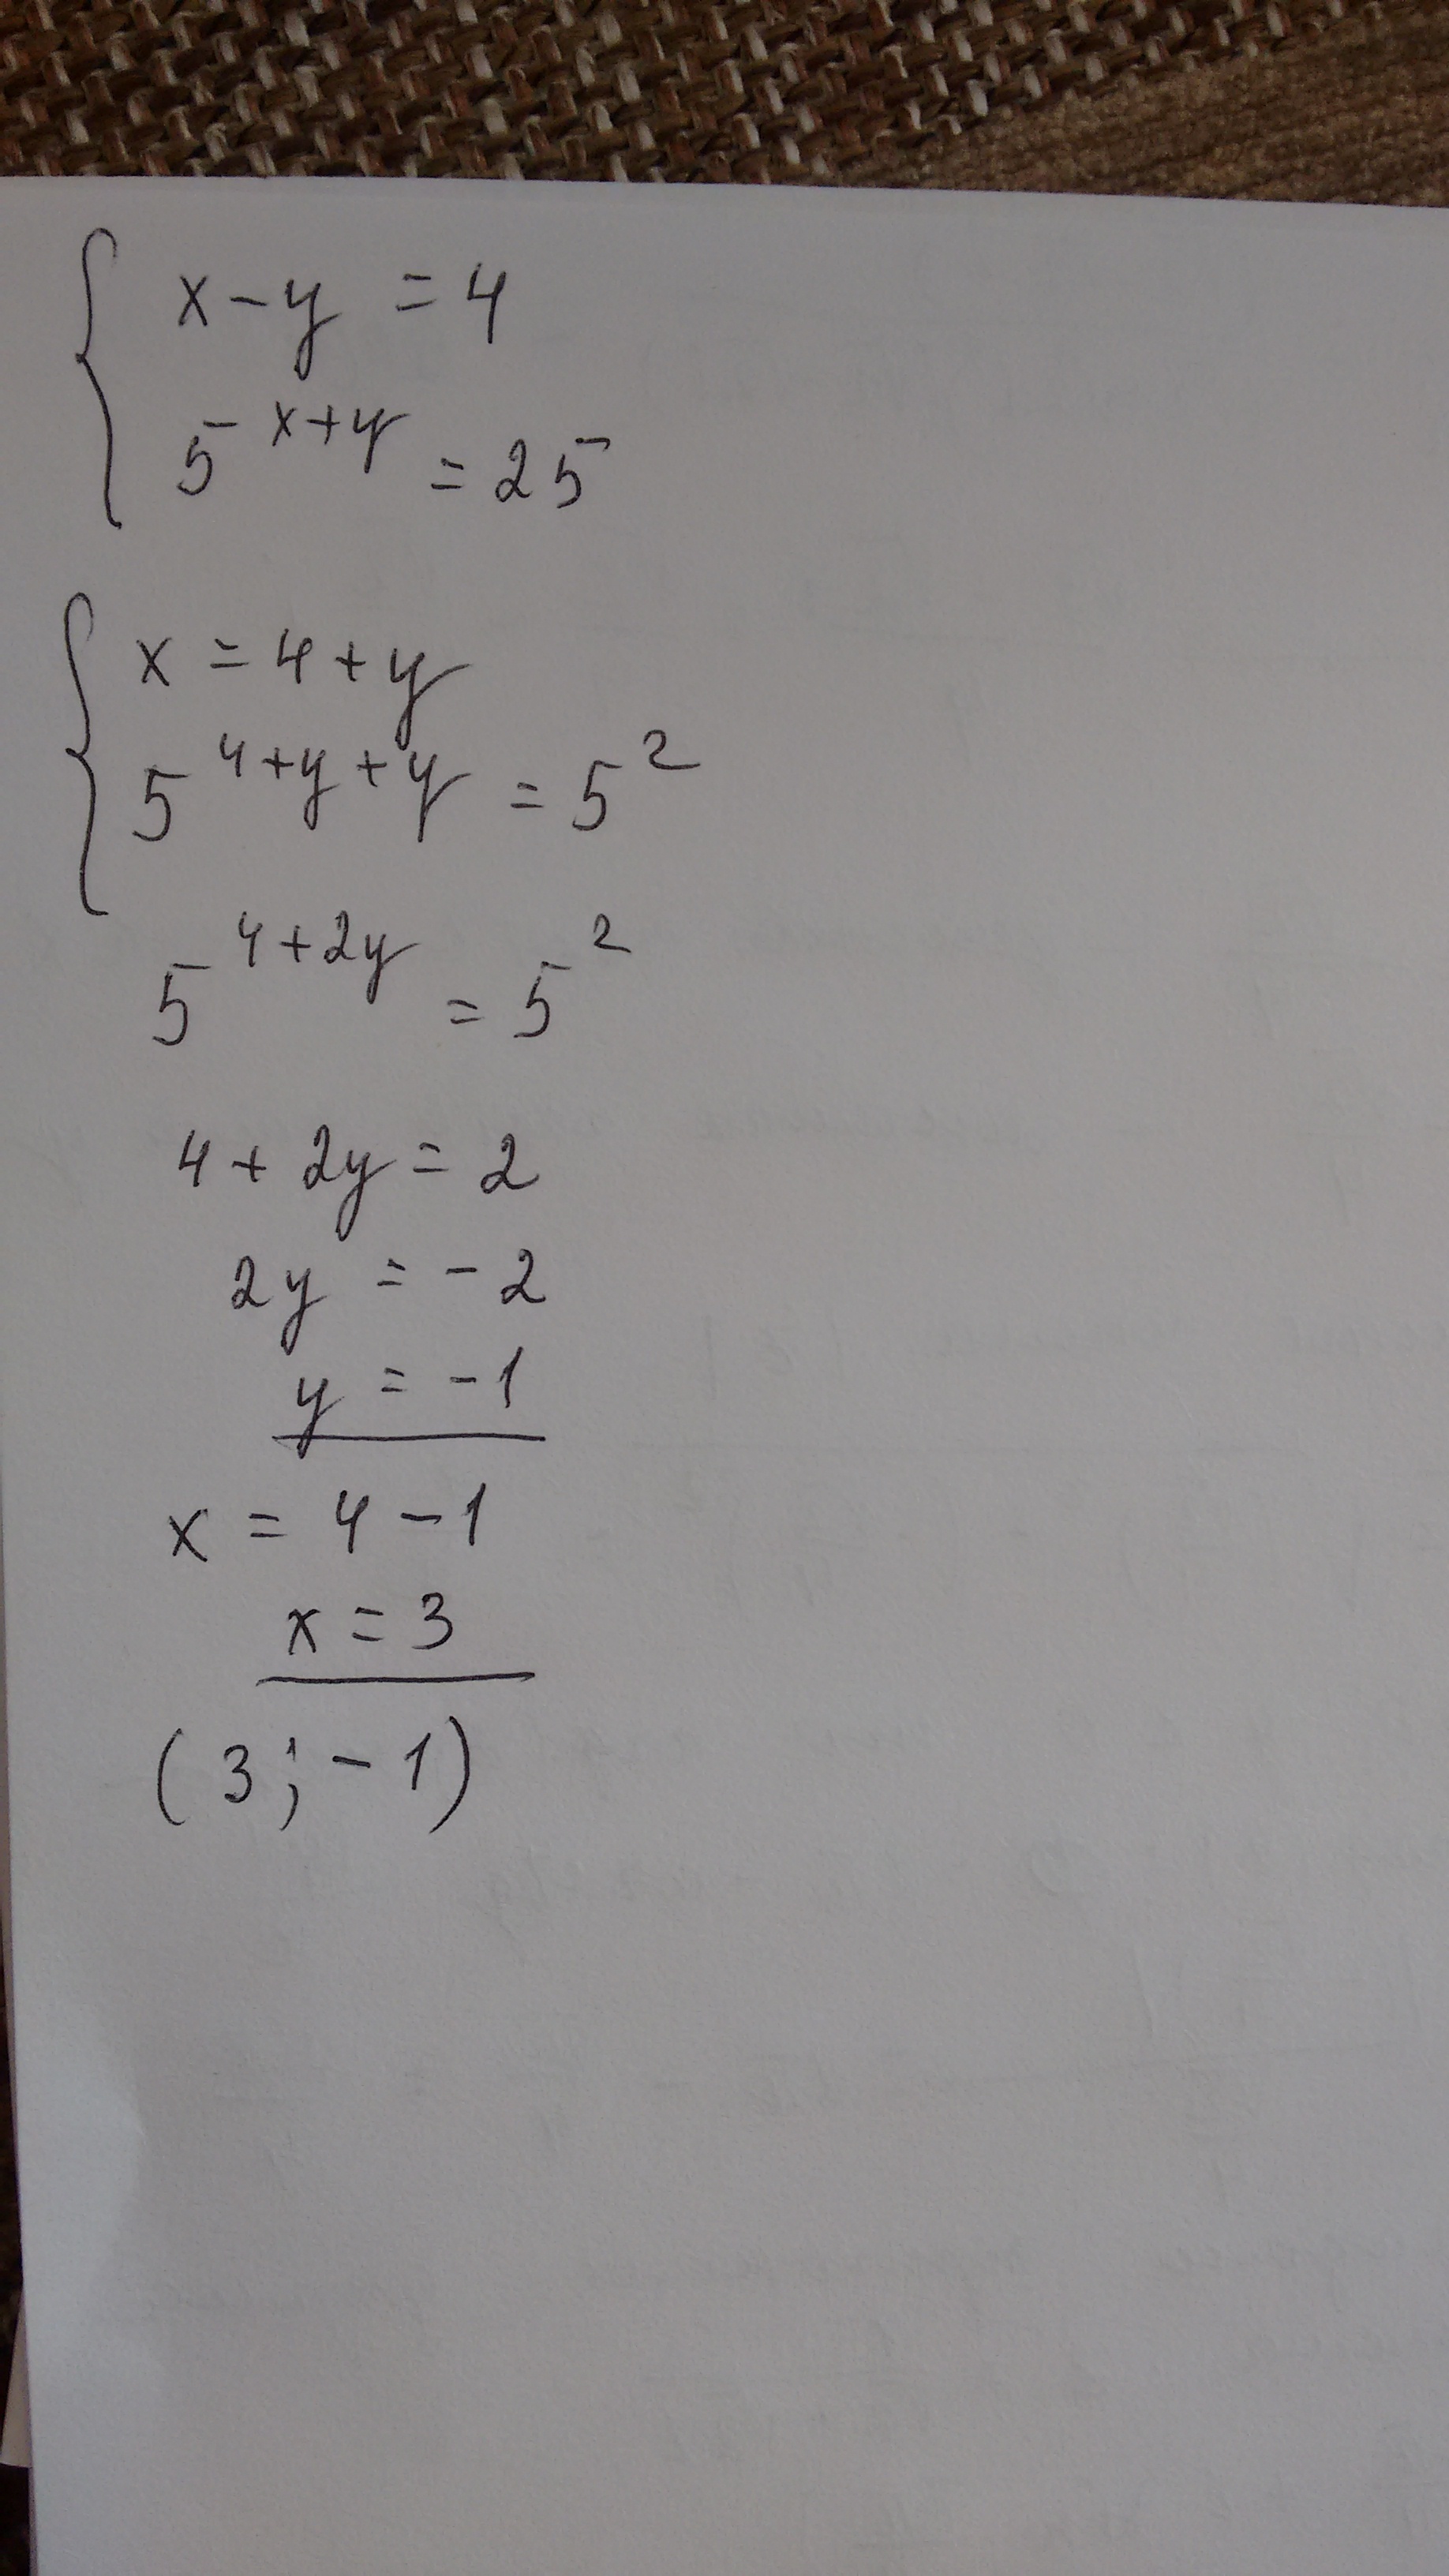 x - y = 4
5^{x+y} = 25
x = 4 + y
5^{4+y+y} = 5^2
5^{4+2y} = 5^2
4 + 2y = 2
2y = -2
y = -1
x = 4 - 1
x = 3
(3; -1)